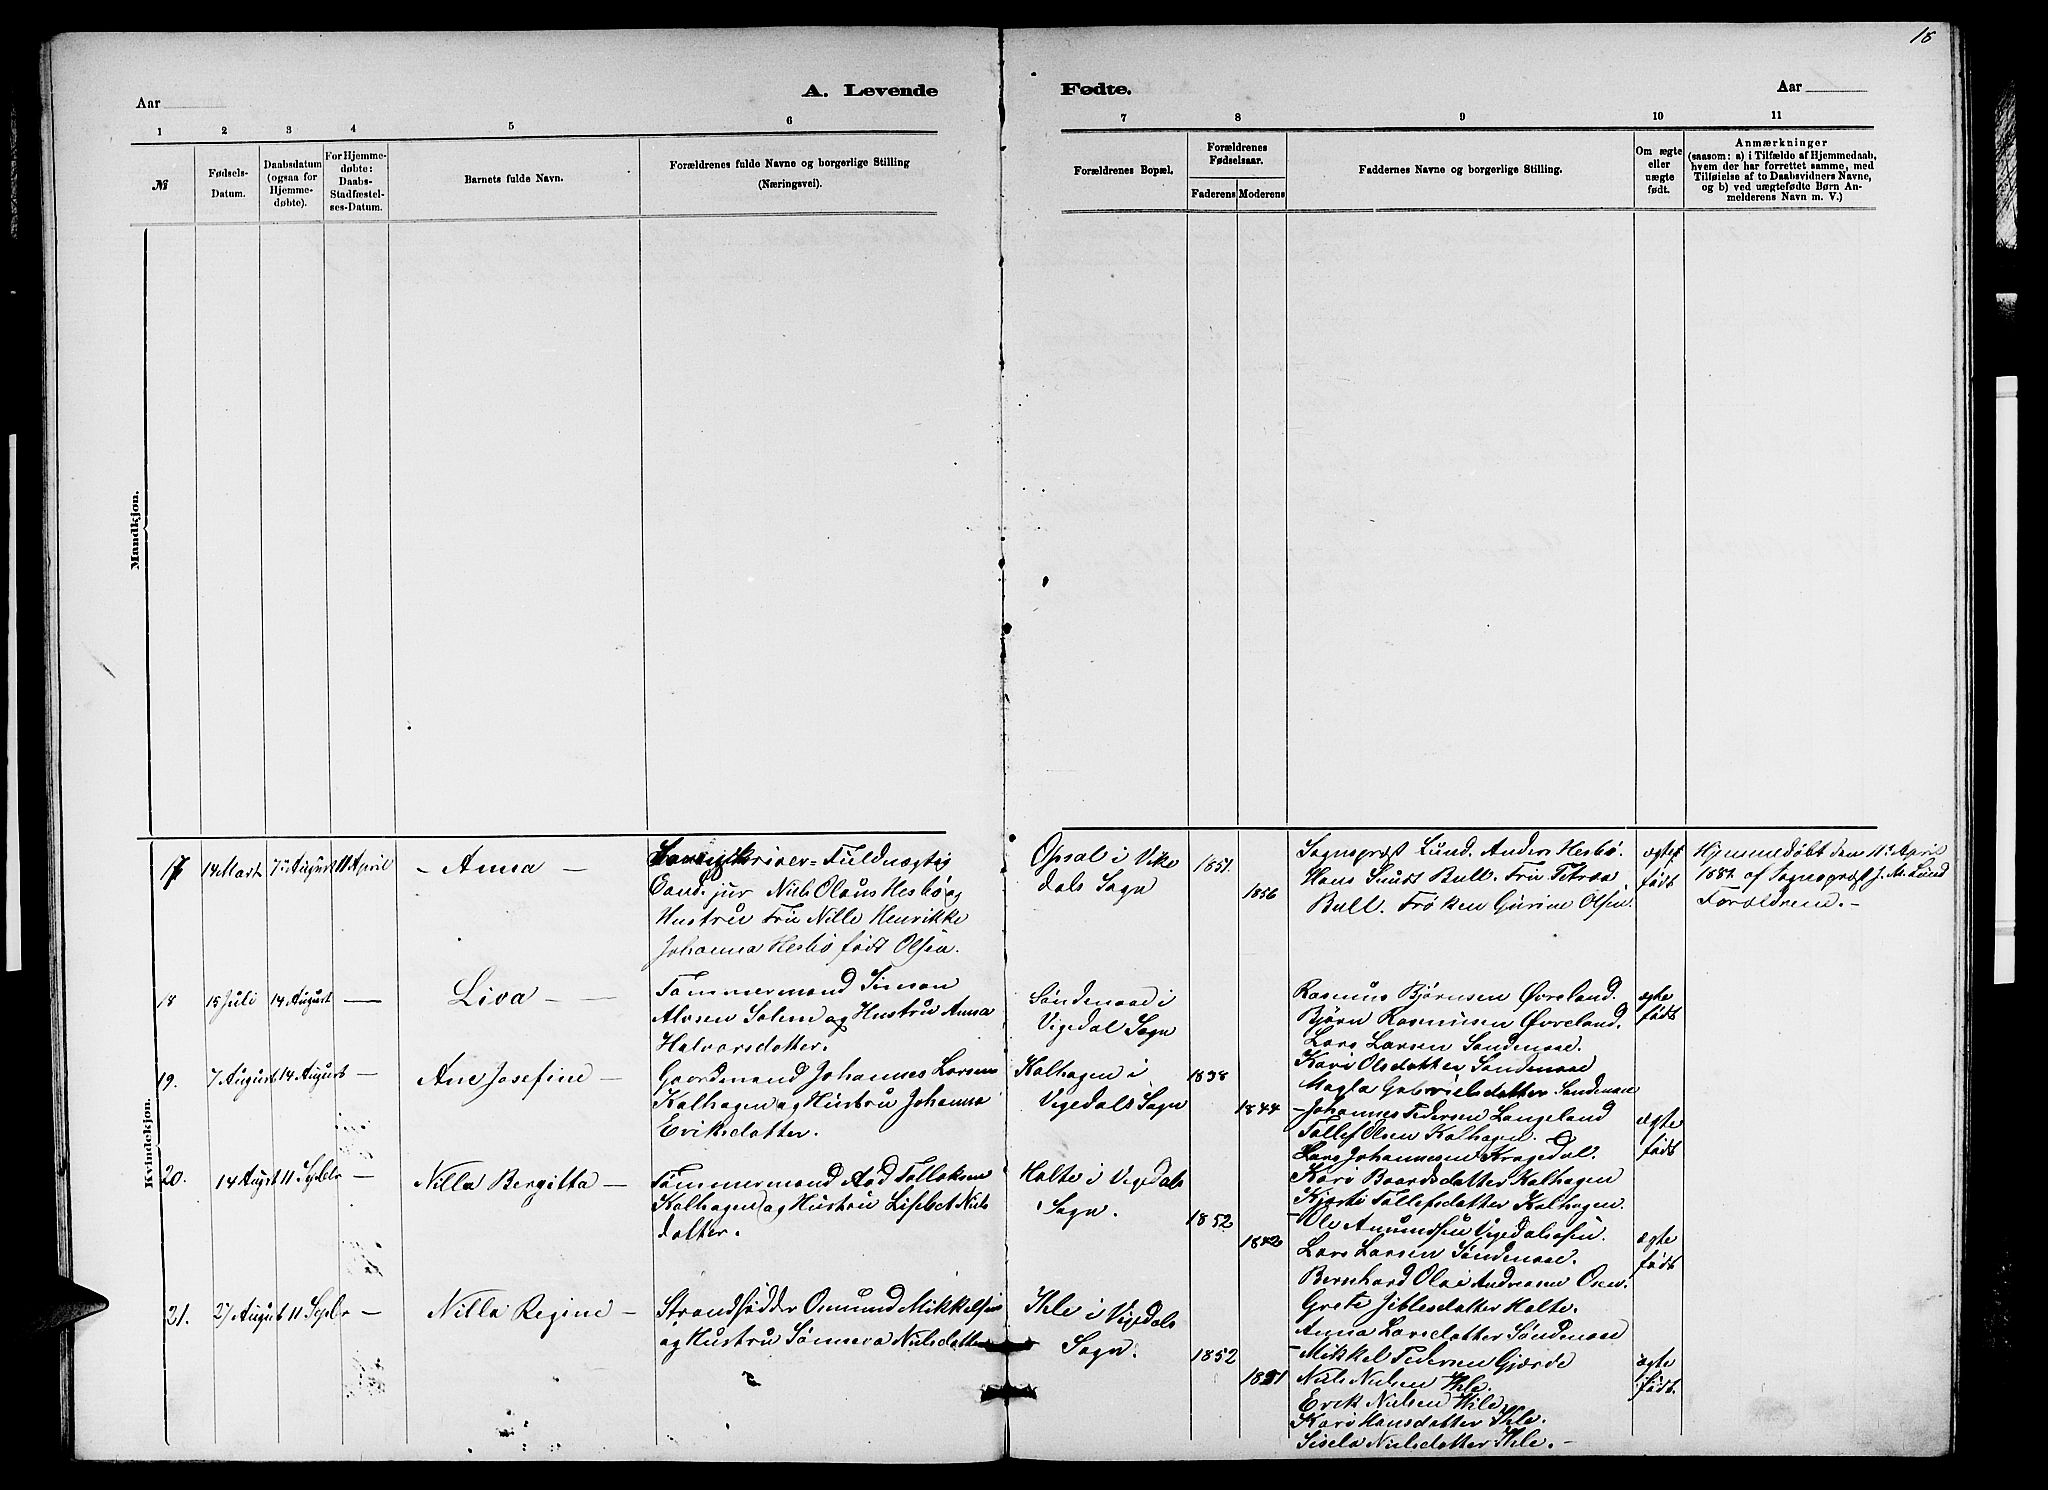 18
Aar
A. Levende
Fødte.
Aar
1 2 3 4 5 6 7 8 9 10 11
№
Fødsels-
Datum.
Daabsdatum
(ogsaa for
Hjemme-
døbte).
For Hjemme-
døbte:
Daabs-
Stadfæstel-
ses-Datum.
Barnets fulde Navn.
Forældrenes fulde Navne og borgerlige Stilling
(Næringsvei).
Forældrenes Bopæl.
Forældrenes
Fødselsaar.
Faderens Moderens
Faddernes Navne og borgerlige Stilling.
Om ægte
eller
uægte
født.
Anmærkninger
(saasom: a) i Tilfælde af Hjemmedaab,
hvem der har forrettet samme, med
Tilføielse af to Daabsvidners Navne,
og b) ved uægtefødte Børn An-
melderens Navn m. V.)
Mandkjøn.
Kvindekjøn.
17 14 Marts 7de August 11 April - Anna -
Fuldmægtig
Cand. jur Niels Olaus Hesbø og
Hustru Fru Nille Henrikke
Johanna Hesbø født Olsen.
Opsal i Vike
dals Sogn
1851
1856
Sognepræst Lund. Anders Hesbø.
Hans Sundt Bull. Fru Petrea
Bull. Frøken Gurine Olsen.
ægte
født
Hjemmedøbt den 11te April
1882 af Sognepræst J. M. Lund
Forældrene. -
18 15 Juli 14 August — Liva —
Tømmermand Simon
Alvsen Solem og Hustru Anna
Halvorsdatter.
Søndenaae i
Vigedal Sogn
Rasmus Bjørnsen Øvreland.
Bjørn Rasmussen Øvreland.
Lars Larsen Søndenaae.
Kari Olsdatter Søndenaae
Magla Gabrielsdatter Søndenaae
ægte
født
19. 7 August 14 August — Ane Josefine —
Gaardmand Johannes Larsen
Kalhagen og Hustru Johanna
Eriksdatter.
Kalhagen i
Vigedals Sogn
1838
1844
- Johannes Pedersen Langeland
Tollef Olsen Kalhagen.
Lars Johannessen Kragedal.
Kari Baardsdatter Kalhagen
Kjersti Tollefsdatter Kalhagen.
ægte
født
20. 14 August 11 Septbr — Nilla Bergitta —
Tømmermand Aad Tollaksen
Kalhagen og Hustru Lisebet Niels
datter.
Halte i Vigedals
Sogn.
1852
1842
- Ole Amundsen Vigedalsosen.
Lars Larsen Søndenaae.
Bernhard Olai Andreasen Osen.
Grete Jiblesdatter Halte.
Anna Larsdatter Søndenaae
ægte
født
21. 27 August 11 Septbr — Nilla Regine —
Strandsidder Osmund Mikkelsen
og Hustru Sønneva Nielsdatter
Ihle i Vigedals
Sogn.
1852
1851
- Mikkel Pedersen Gjerde
Niels Nielsen Ihle.
Erik Nielsen Ihle.
Kari Hansdatter Ihle.
Sisela Nielsdatter Ihle. -
ægte
født